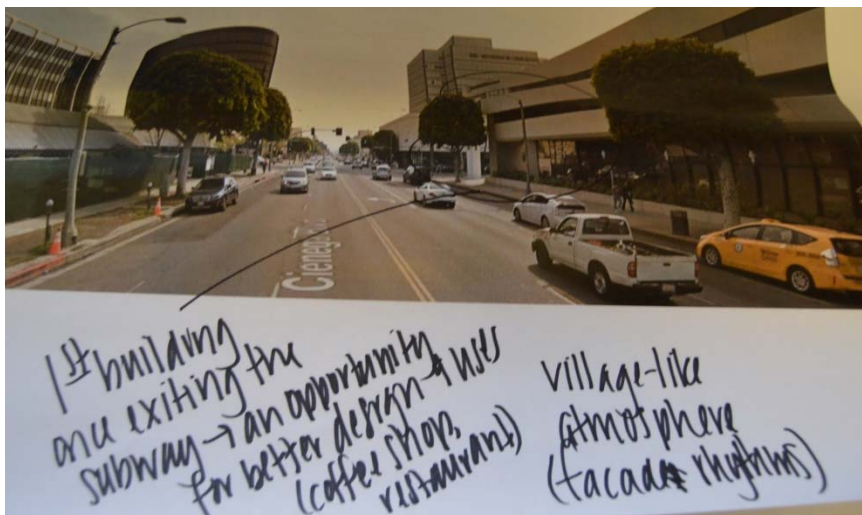 Cienega
1st building
once exiting the
subway → an opportunity
for better design + uses
(coffee shop,
restaurant)
village-like
atmosphere
(facade rhythms)